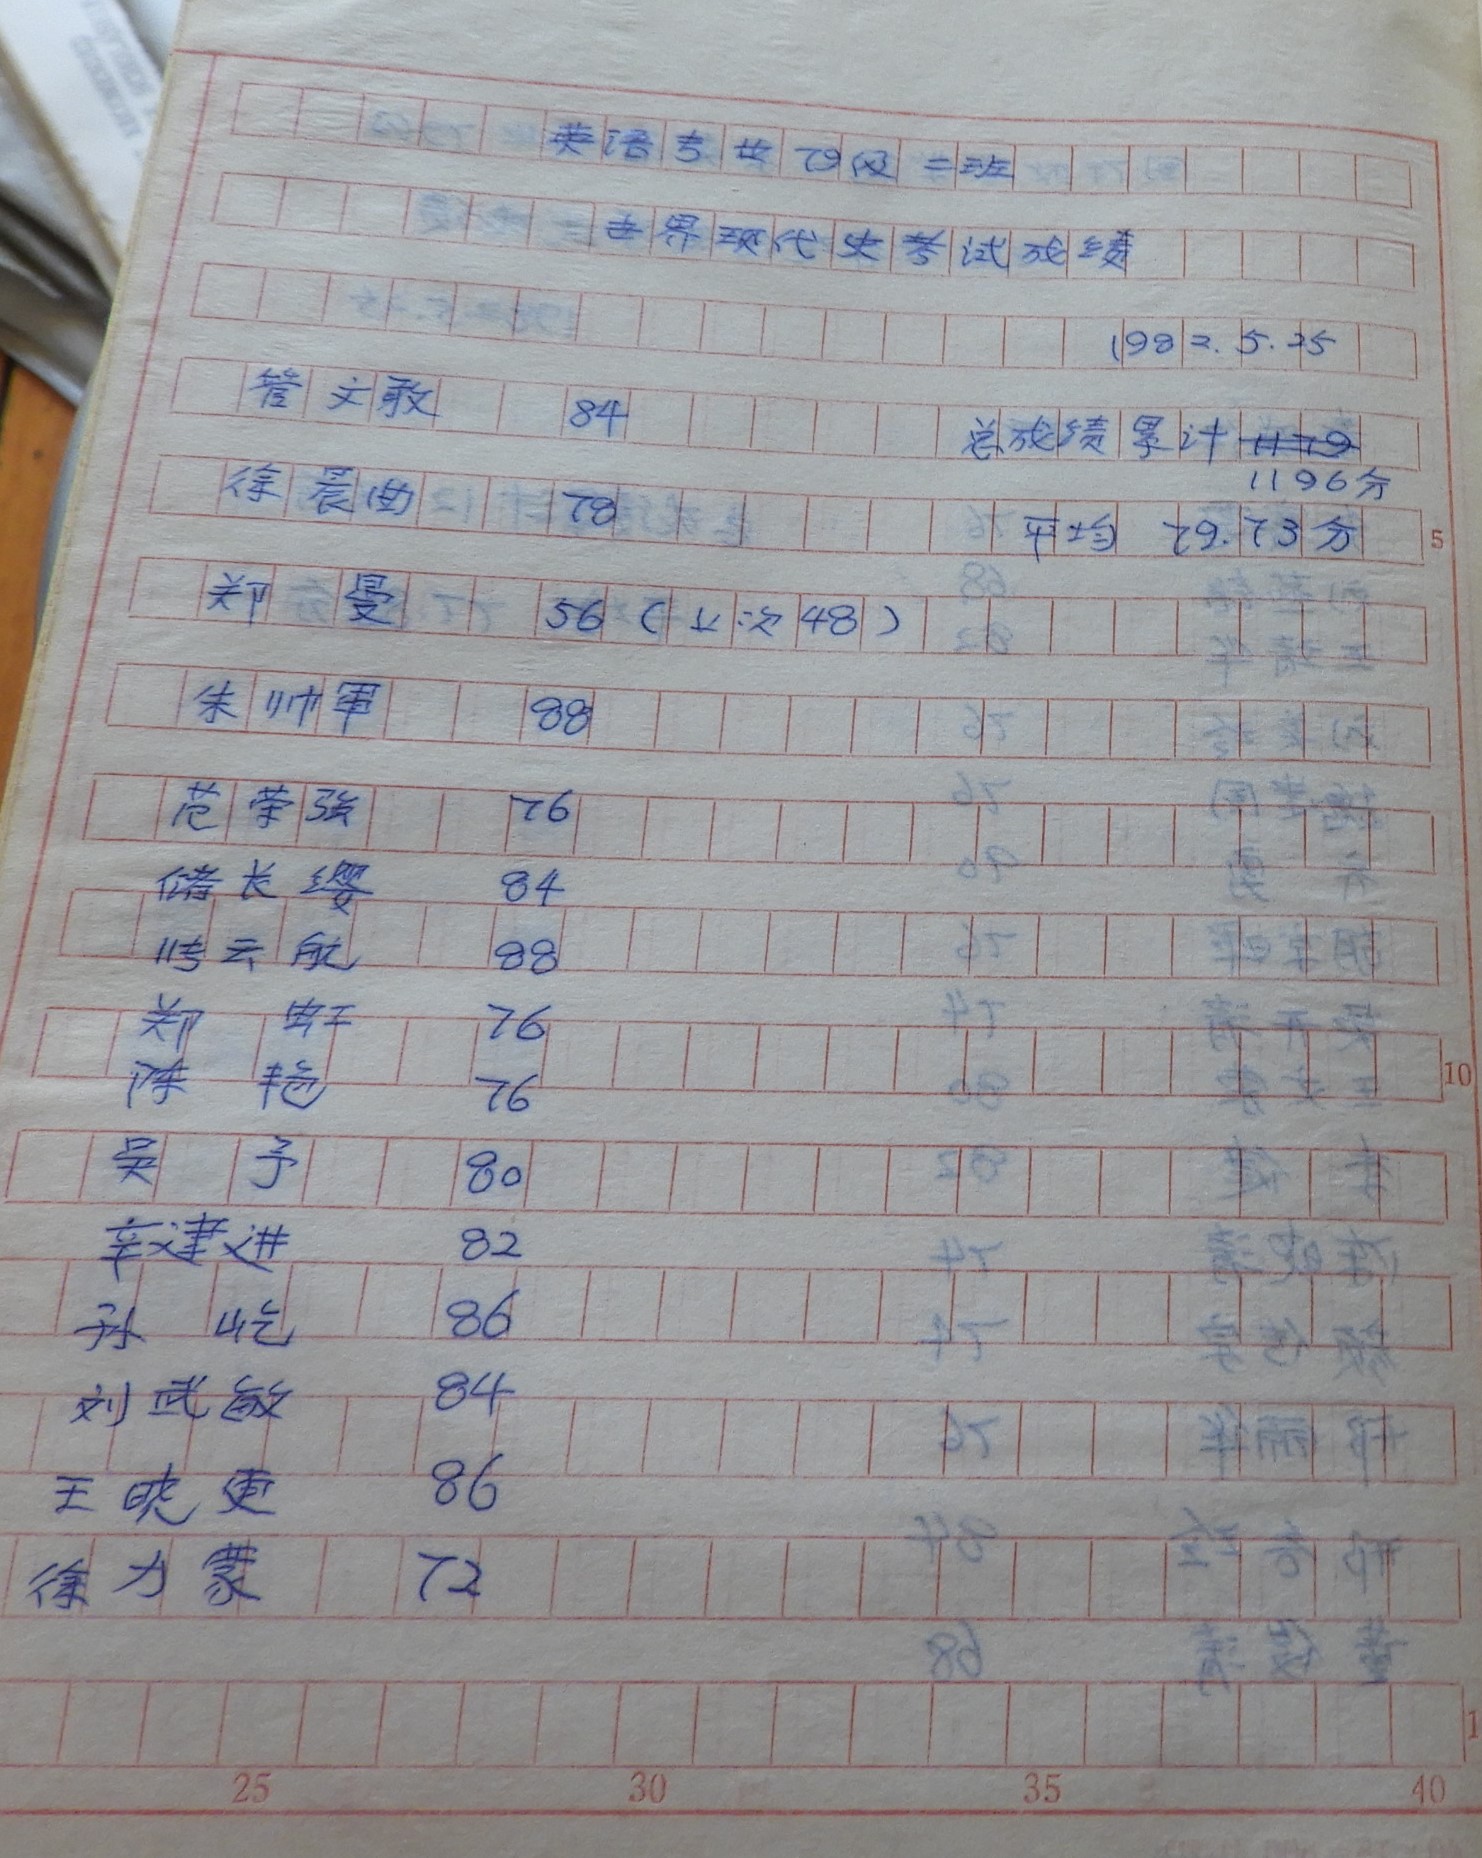 英语专业79级二班
世界现代史考试成绩
1982.5.25
管文敢 84
总成绩累计 1179
1196分
徐晨曲 78
平均 79.73分
5
郑曼 56(上次48)
朱帅军 88
范荣强 76
储长缨 84
云航 88
郑虹 76
陈艳 76
10
吴予 80
辛津进 82
孙屹 86
刘武敏 84
王晓更 86
徐力蒙 72
25 30 35 40